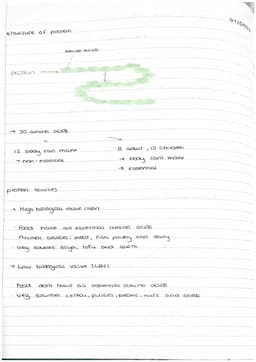 structure of protein
amino acids
protein
→ 20 amino acids
12 body can make
8 adult, 10 children
→ non-essential
→ body can't make
→ essential
protein sources
→ High biological value (HBV)
Food have all essential amino acids
Animal sources: meat, fish, poultry and dairy
veg sources: soya, tofu and quorn
→ Low biological value (LBV)
Food don't have all essential amino acids
veg sources: cereal, pulses, beans, nuts and seeds